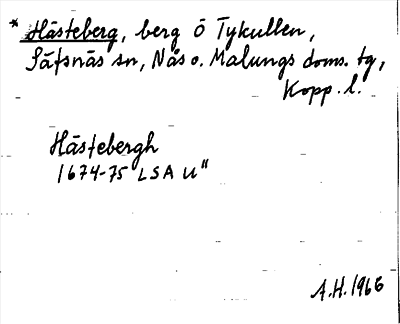 * Hästeberg, berg Ö Tykullen,
Säfsnäs sn, Nås o. Malungs doms. tg,
Kopp. l.
Hästebergh
1674-75 LSA U"
A.H. 1966